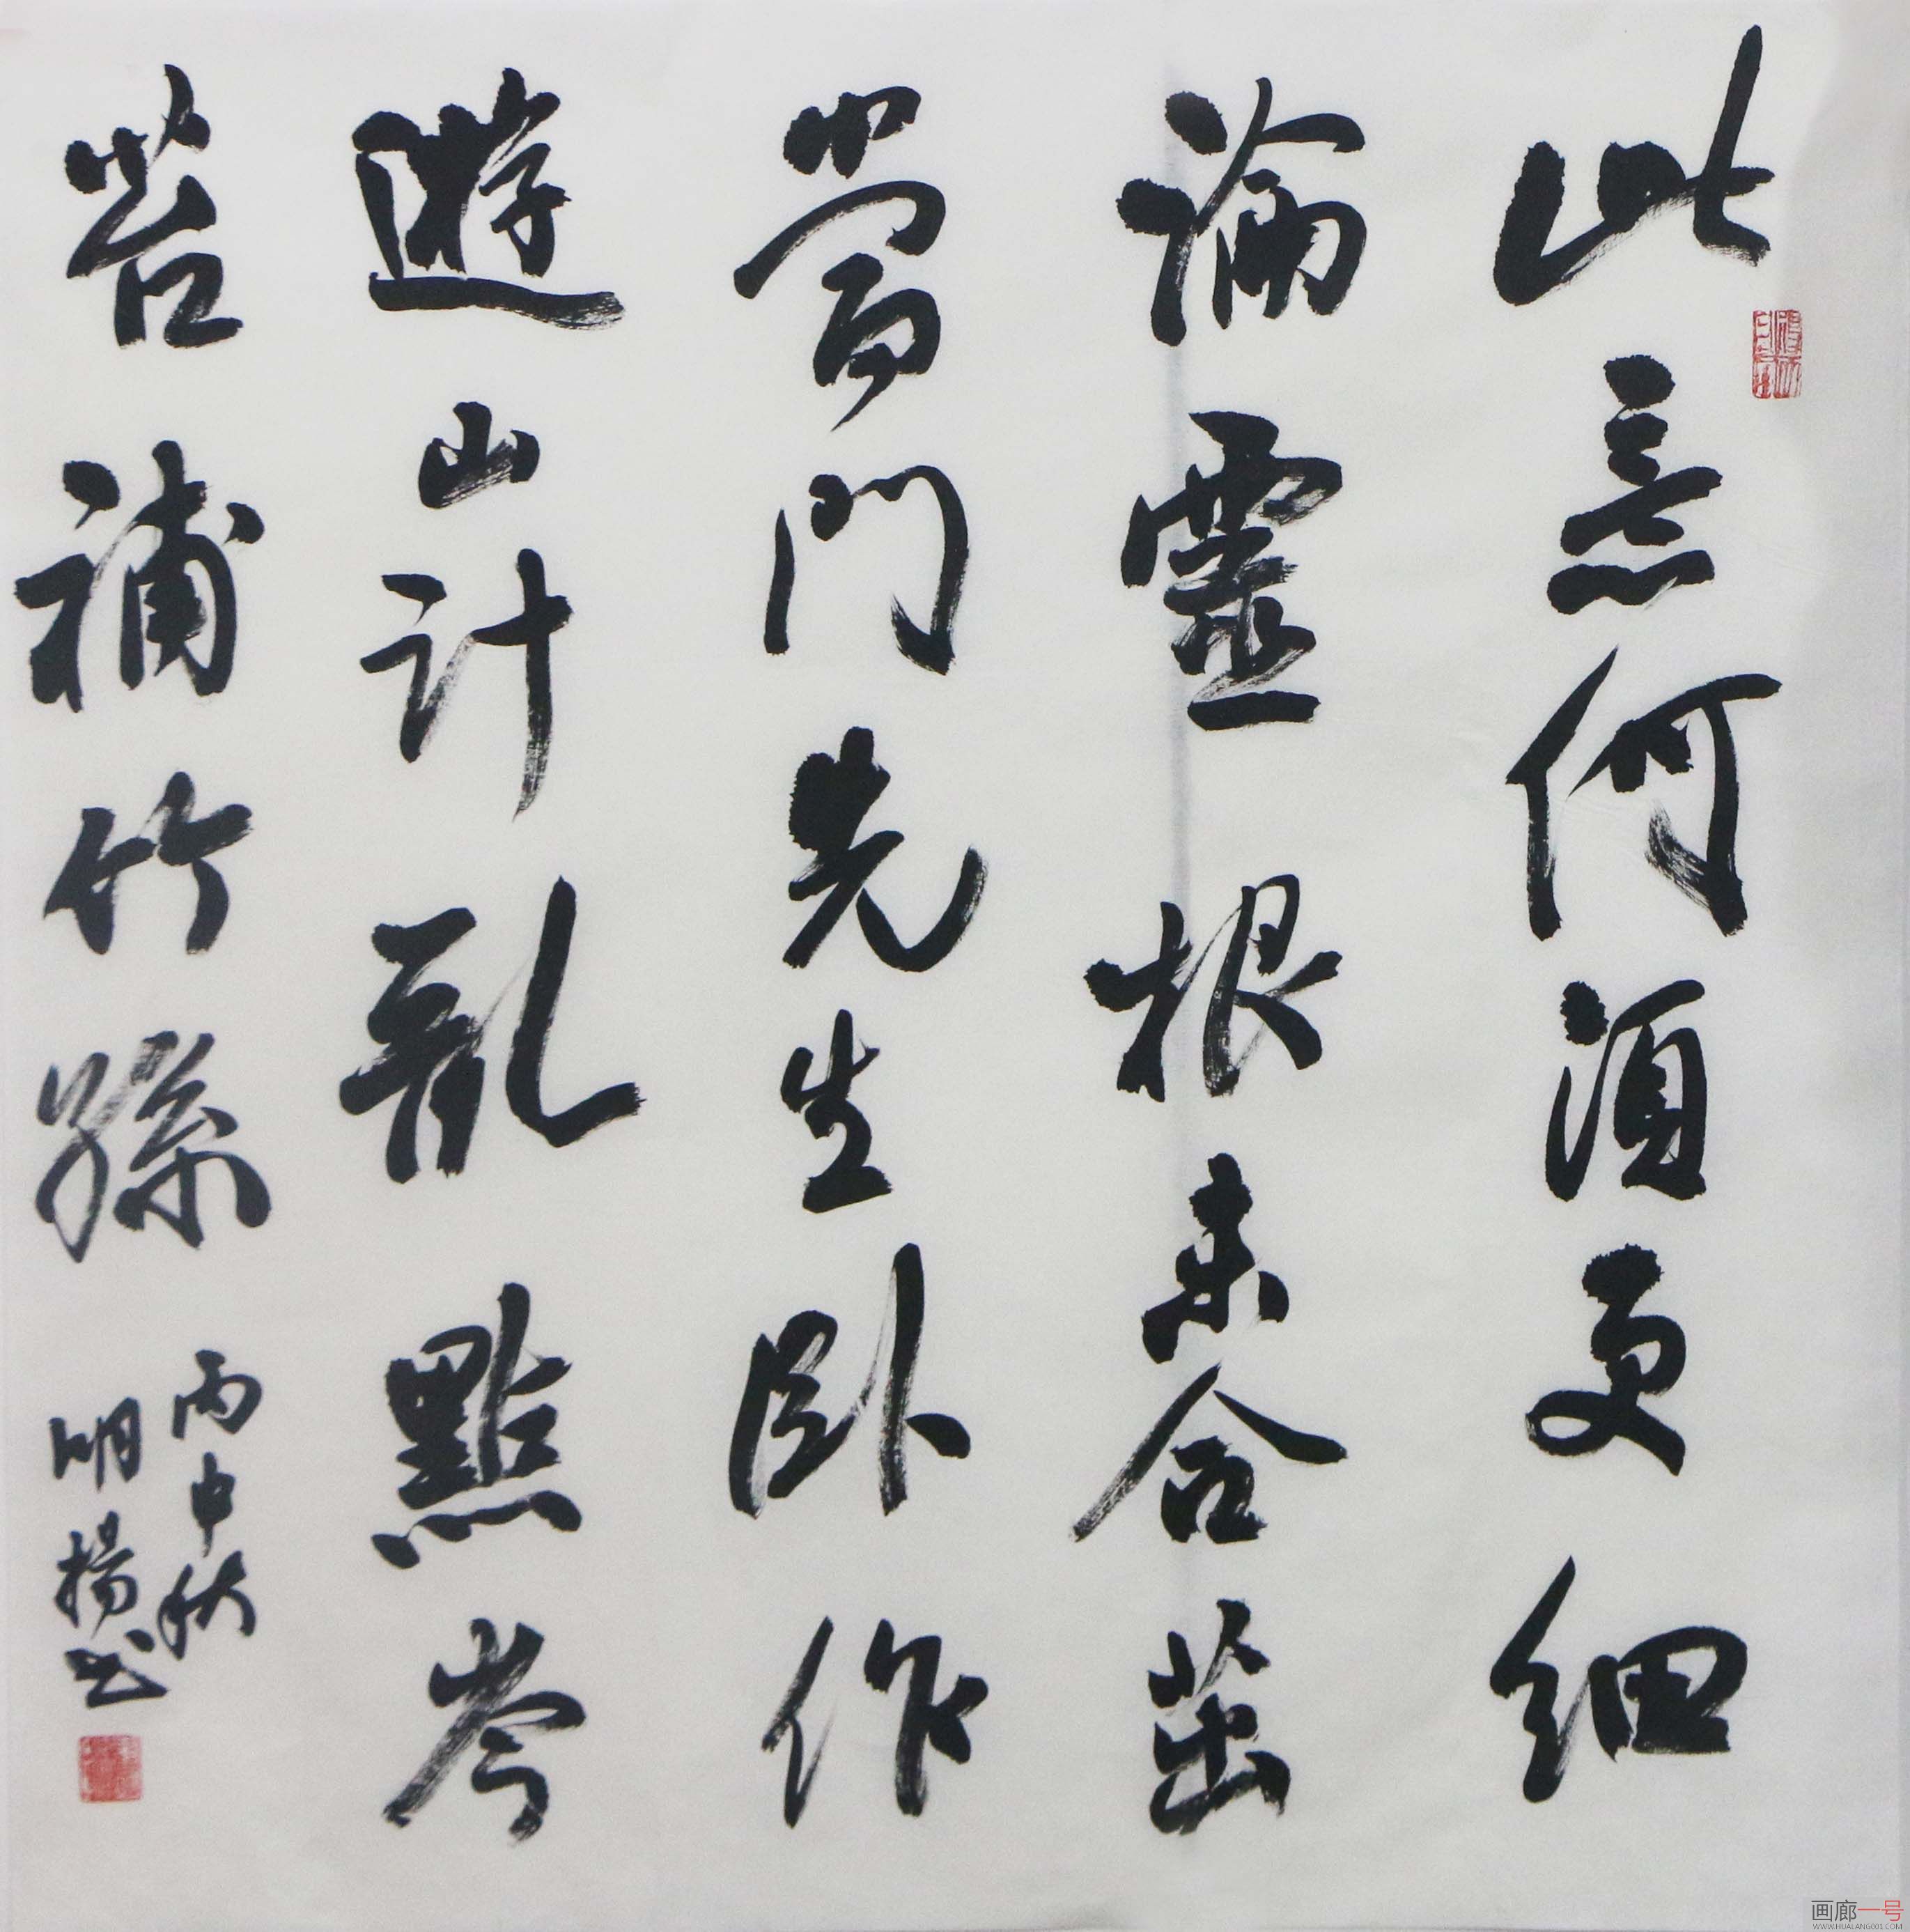 此意何須更細
論靈根未合茁
當門先生臥作
遊山計亂點岑
苔補竹孫
丙申秋
明揚书
画廊一号
WWW.HUALANG001.COM